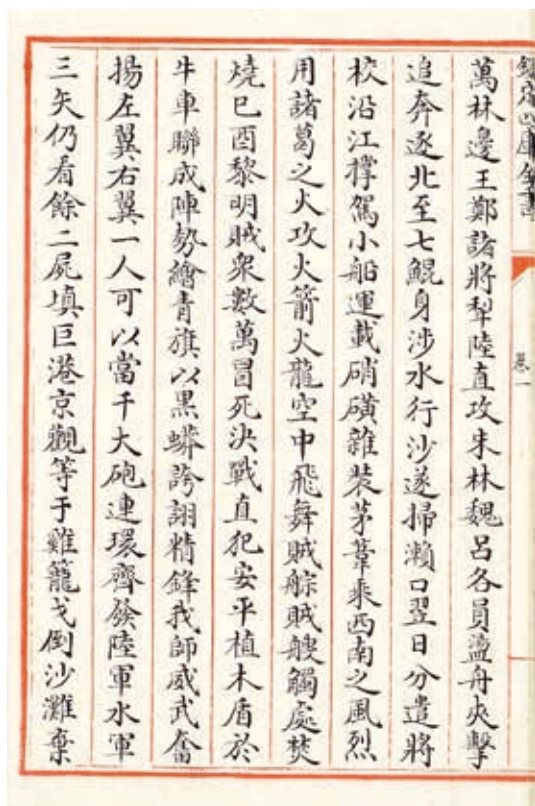 欽定四庫全書
卷一
萬林邊王鄭諸將犁陸直攻朱林魏呂各員盪舟夾擊
追奔逐北至七鯤身涉水行沙遂掃瀨口翌日分遣將
校沿江撑駕小船運載硝磺雜裝茅葦乘西南之風烈
用諸葛之火攻火箭火龍空中飛舞賊䑸賊艘觸處焚
燒巳酉黎明賊衆數萬冒死決戰直犯安平植木盾於
牛車聯成陣勢繪青旗以黑蟒誇詡精鋒我師威武奮
揚左翼右翼一人可以當千大砲連環齊發陸軍水軍
三矢仍看餘二屍填巨港京觀等于雞籠戈倒沙灘棄